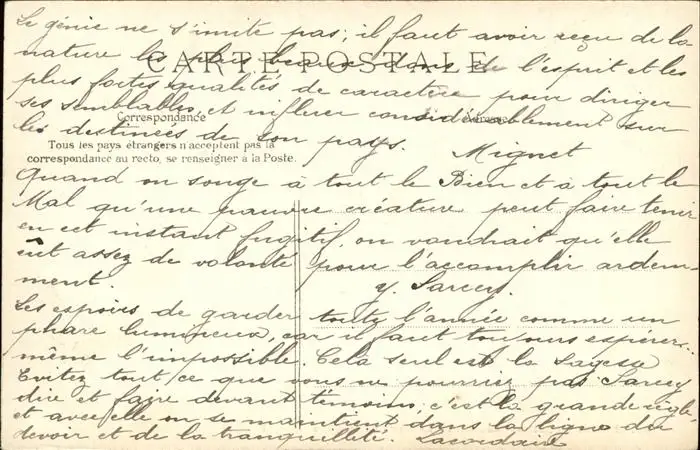 Le génie ne s'imite pas; il faut avoir reçu de la
nature les plus beaux dons de l'esprit et les
CARTE POSTALE
plus fortes qualités de caractère pour diriger
ses semblables, et influer considérablement sur
Correspondance
Adresse
les destinées de son pays.
Mignet
Tous les pays étrangers n'acceptent pas la
correspondance au recto, se renseigner à la Poste.
Quand on songe à tout le Bien et à tout le
Mal qu'une pauvre créature peut faire tenir
en cet instant fugitif, on voudrait qu'elle
eût assez de volonté pour l'accomplir ardem
ment.
y. Sarcey.
Les espoirs de garder toute l'année comme un
phare lumineux, car il faut toujours espérer.
même l'impossible. Cela seul est la Sagesse
Sarcey
Evitez tout ce que vous ne pourriez pas
dire et faire devant témoins, c'est la grande règle
et avec elle on se maintient dans la ligne du
devoir et de la tranquillité. Lacordaire